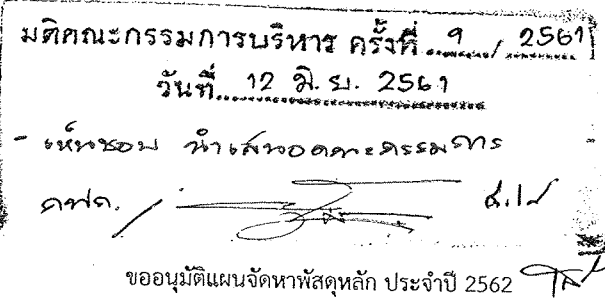 มติคณะกรรมการบริหาร ครั้งที่ 9 / 2561
วันที่ 12 มิ.ย. 2561
- เห็นชอบ นำเสนอคณะกรรมการ
กฟภ.
ขออนุมัติแผนจัดหาพัสดุหลัก ประจำปี 2562